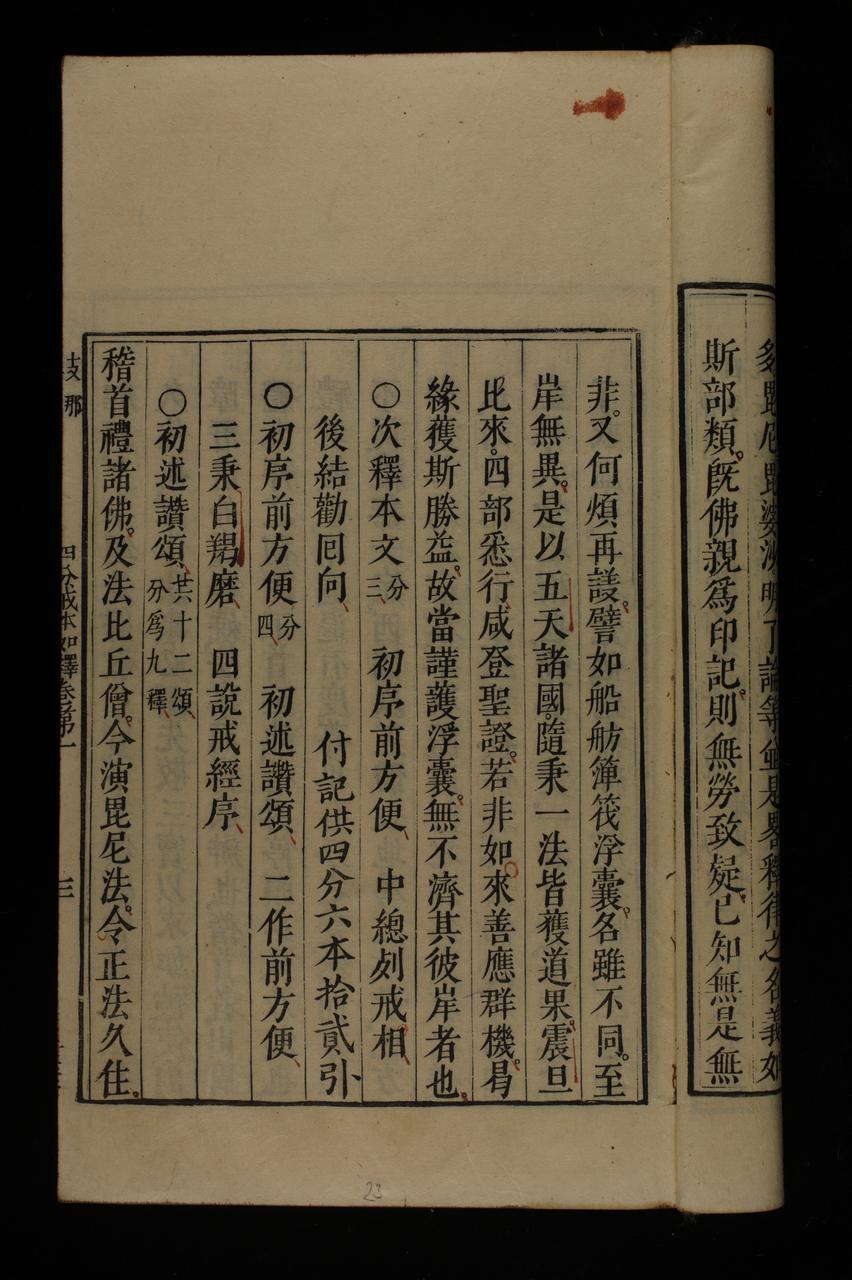 毘尼毘婆沙明了論等並是畧釋律之名義如
斯部類既佛親爲印記則無勞致疑已知無是無
非又何煩再議譬如船舫簰筏浮囊名雖不同至
岸無異是以五天諸國隨秉一法皆獲道果震旦
比來四部悉行咸登聖證若非如來善應群機曷
緣獲斯勝益故當謹護浮囊無不濟其彼岸者也
○次釋本文分三 初序前方便 中總列戒相
後結勸回向 付記供四分六本拾貳引
○初序前方便分四 初述讚頌 二作前方便
三秉白羯磨 四說戒經序
○初述讚頌共十二頌分爲九釋
稽首禮諸佛及法比丘僧今演毘尼法令正法久住
支那 四分戒本如釋卷第一 三
23